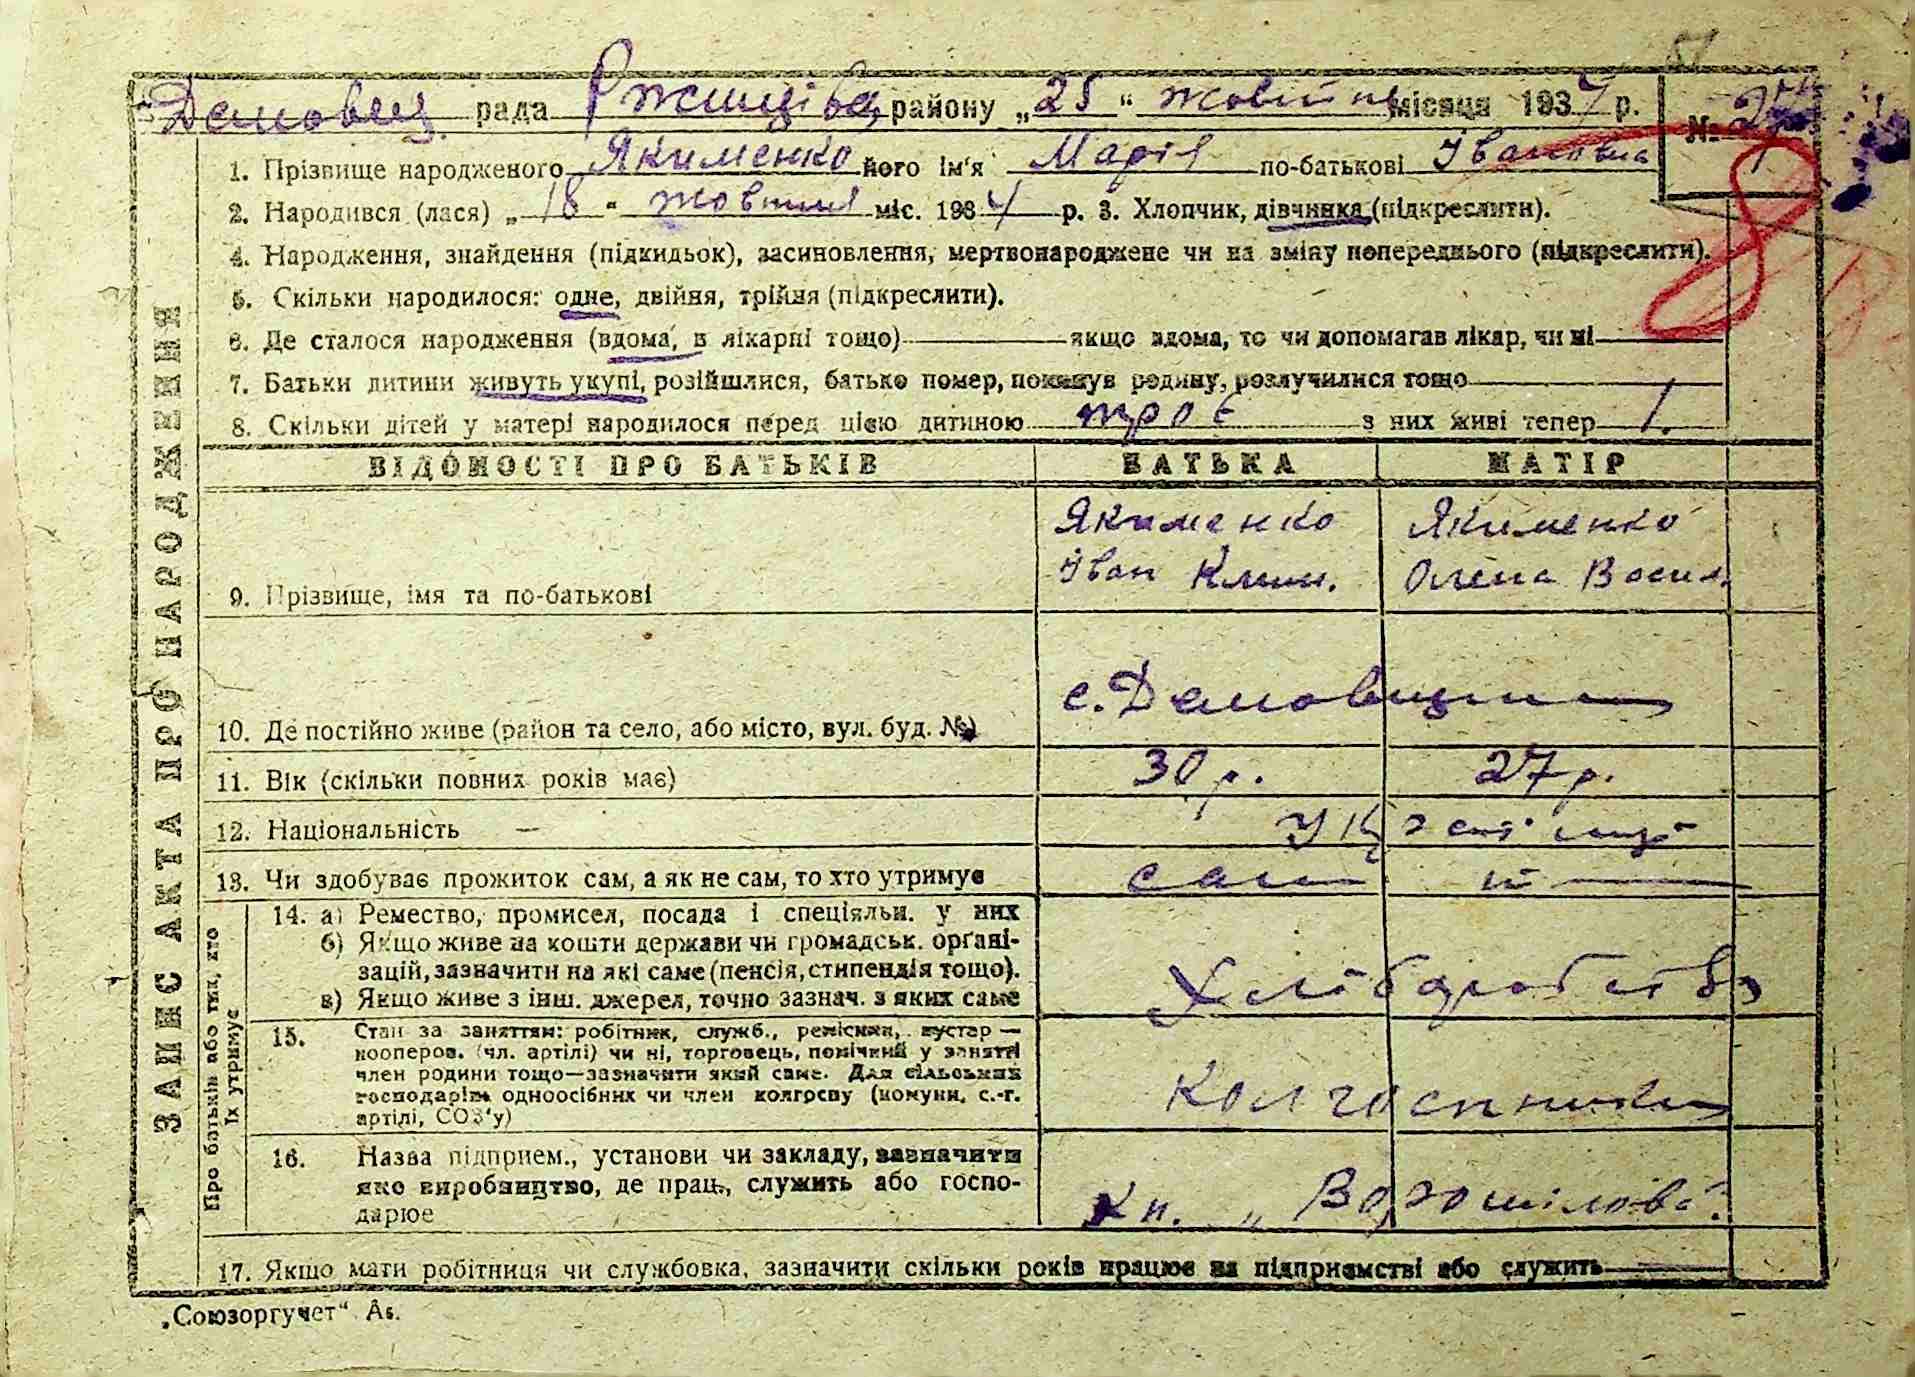 рада Ржищівс. району „25“ жовтня місяця 1934 р.
№ 27
1. Прізвище народженого Якименко його ім'я Марія по-батькові Івановна
2. Народився (лася) „18“ жовтня міс. 1934 р. 3. Хлопчик, дівчинка (підкреслити).
4. Народження, знайдення (підкидьок), засиновлення, мертвонароджене чи на зміну попереднього (підкреслити).
5. Скільки народилося: одне, двійня, трійня (підкреслити).
6. Де сталося народження (вдома, в лікарні тощо) якщо вдома, то чи допомагав лікар, чи ні
7. Батьки дитини живуть укупі, розійшлися, батько помер, покинув родину, розлучилися тощо
8. Скільки дітей у матері народилося перед цією дитиною троє з них живі тепер 1.
8
ЗАПИС АКТА ПРО НАРОДЖЕННЯ
ВІДОМОСТІ ПРО БАТЬКІВ БАТЬКА МАТІР
9. Прізвище, імя та по-батькові
Якименко
Іван Клим.
Якименко
Олена Васил.
10. Де постійно живе (район та село, або місто, вул. буд. №)
с. Демовщина
11. Вік (скільки повних років має) 30 р. 27 р.
12. Національність —
13. Чи здобуває прожиток сам, а як не сам, то хто утримує сам
Про батьків або тих, хто
їх утримує
14. а) Ремество, промисел, посада і спеціяльн. у них
б) Якщо живе на кошти держави чи громадськ. органі-
зацій, зазначити на які саме (пенсія, стипендія тощо).
в) Якщо живе з інш. джерел, точно зазнач. з яких саме
Хліборобство
15. Стан за заняттям: робітник, служб., ремісник, кустар —
кооперов. (чл. артілі) чи ні, торговець, помічний у занятті
член родини тощо—зазначити який саме. Для сільських
господарів одноосібних чи член колгоспу (комуни, с.-г.
артілі, СОЗ'у)
Колгоспники
16. Назва підприєм., установи чи закладу, зазначити
яке виробництво, де прац., служить або госпо-
дарює
Ворошилова
17. Якщо мати робітниця чи службовка, зазначити скільки років працює на підприємстві або служить
„Союзоргучет“ А5.